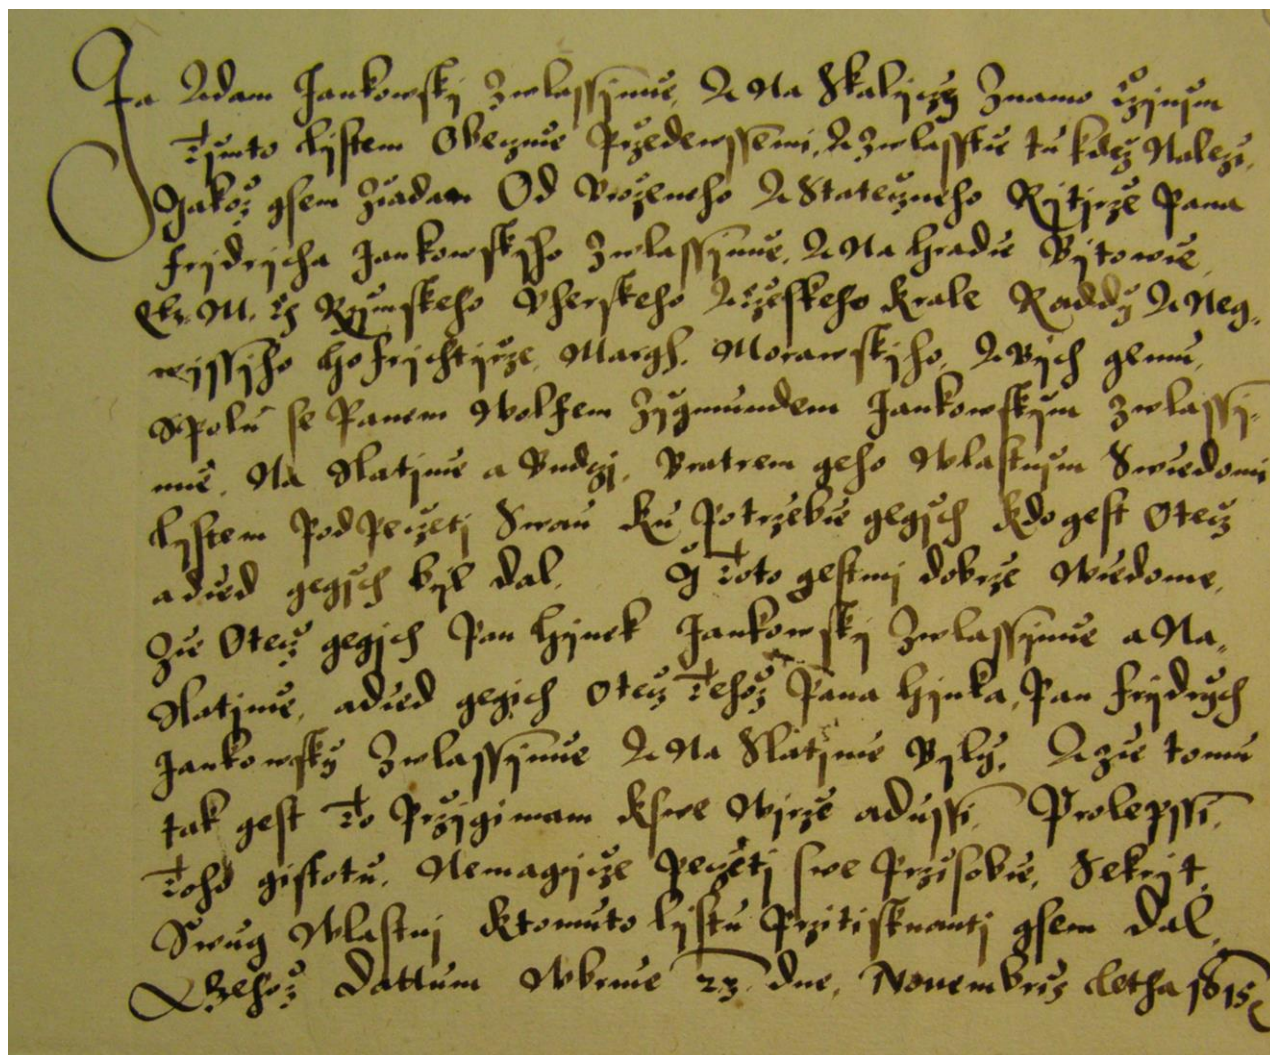 Ja Adam Jankowsky Zwlassymie, A Na Skalyczy Znamo czynym
Tymto lystem Obecznie Przedewssemi, A zwlasstie tu kdez Nalezi,
Jakoz gsem Ziadan Od Urozeneho A Stateczneho Rytyrze Pana
Frydrycha Jankowskyho Zwlassymie, A Na Hradie Bytowie,
Rzymskeho Uherskeho A czeskeho Krale Raddy A Neg,
wyssyho Hofrychtyrze, Margk. Morawskyho, A bych gemu,
Spolu se Panem Wolfem Zygmundem Jankowskym zwlassy,
mie, Na Slatinie a Budczi, Bratrem geho Wlastnym Swiedomi
lystem Pod Peczeti Swau Ku Potrzebie gegych kdo gest Otecz
adied gegych byl dal. Y Toto gestmi dobrze Wiedome,
Zie Otecz gegich Pan Hynek Jankowsky Zwlassymie a Na,
Slatinie, adied gegich Otecz Tehoz Pana Hynka, Pan Frydrych
Jankowsky Zwlassymie A Na Slatinie Byly, A zie tomu
tak gest To Przygimam Kswe Wirze adussi, Prolepssi,
Toho gistotu, Nemagicze Peczeti swe Przisobie, Sekryt,
Swug Wlastni Ktomuto lystu Przitisknauti gsem dal,
Gehoz Dattum Wbrnie 23. dne, Novembris Letha 1615